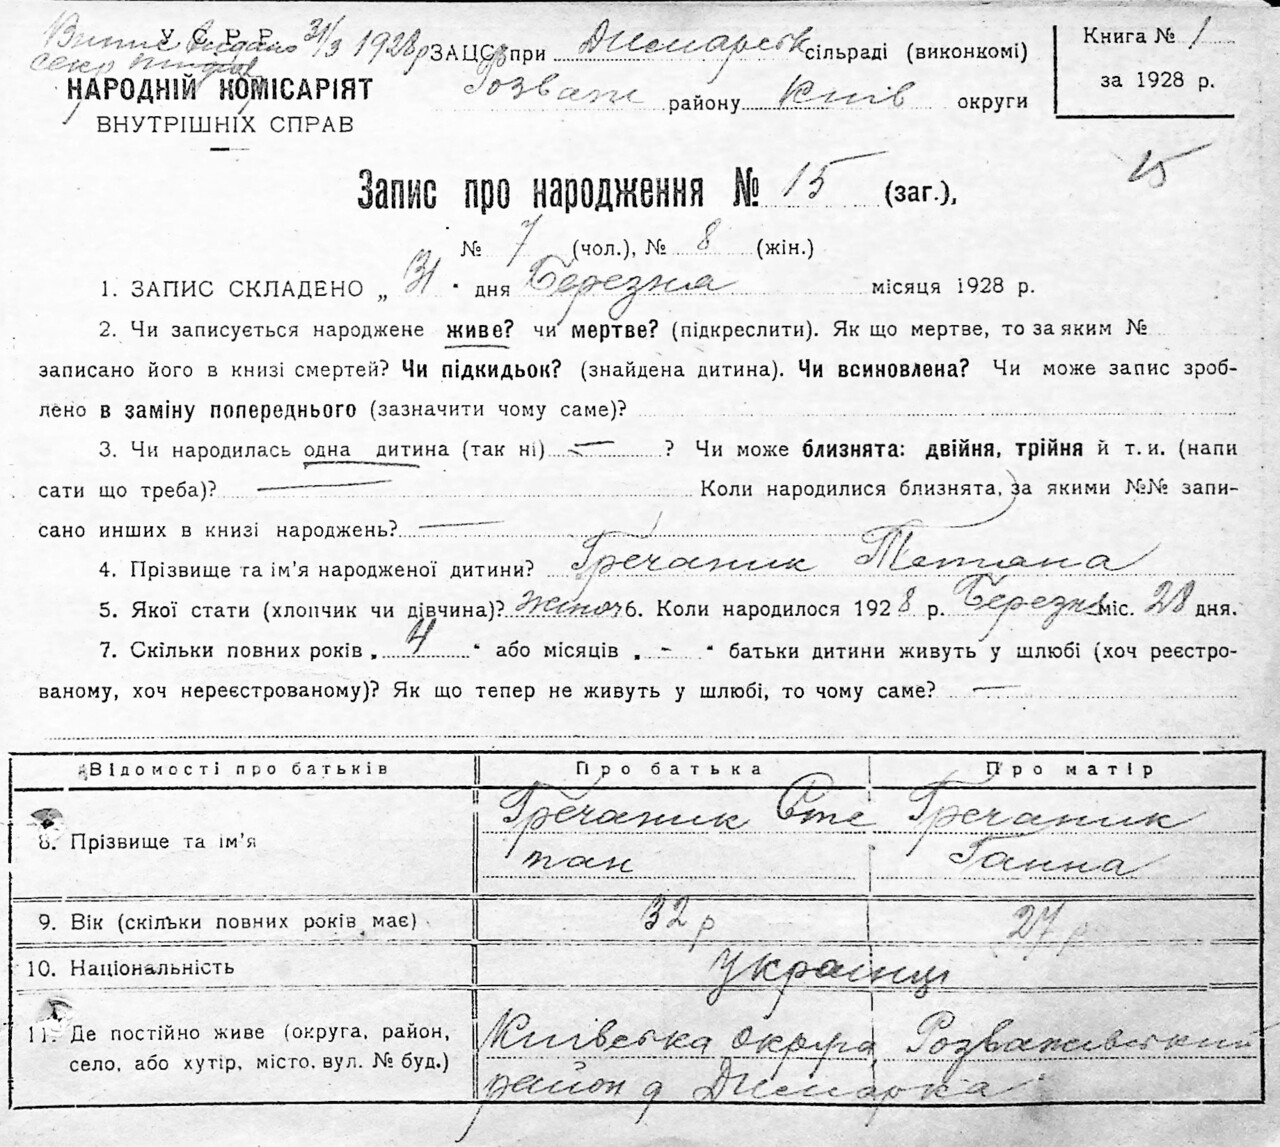 Випис видано 31/3 1928 р
У.С.Р.Р.
НАРОДНІЙ КОМІСАРІЯТ
ВНУТРІШНІХ СПРАВ
ЗАЦС при Димарськ сільраді (виконкомі)
Розваж району Київ округи
Книга № 1
за 1928 р.
15
Запис про народження № 15 (заг.),
№ 7 (чол.), № 8 (жін.)
1. ЗАПИС СКЛАДЕНО „ 31 " дня Березня місяця 1928 р.
2. Чи записується народжене живе? чи мертве? (підкреслити). Як що мертве, то за яким №
записано його в книзі смертей? Чи підкидьок? (знайдена дитина). Чи всиновлена? Чи може запис зроб-
лено в заміну попереднього (зазначити чому саме)?
3. Чи народилась одна дитина (так ні) — ? Чи може близнята: двійня, трійня й т. и. (напи
сати що треба)? — Коли народилися близнята, за якими №№ запи-
сано инших в книзі народжень? —
4. Прізвище та ім'я народженої дитини? Гречаник Тетяна
5. Якої стати (хлопчик чи дівчина)? жіноч 6. Коли народилося 1928 р. Березня міс. 28 дня.
7. Скільки повних років „ 4 " або місяців „ - " батьки дитини живуть у шлюбі (хоч реєстро-
ваному, хоч нереєстрованому)? Як що тепер не живуть у шлюбі, то чому саме? —
Відомості про батьків Про батька Про матір
8. Прізвище та ім'я Гречаник Сте Гречаник
пан Ганна
9. Вік (скільки повних років має) 32 р 27 р
10. Національність Українці
11. Де постійно живе (округа, район, Київська округа Розважівський
село, або хутір, місто, вул. № буд.) район с Димарка